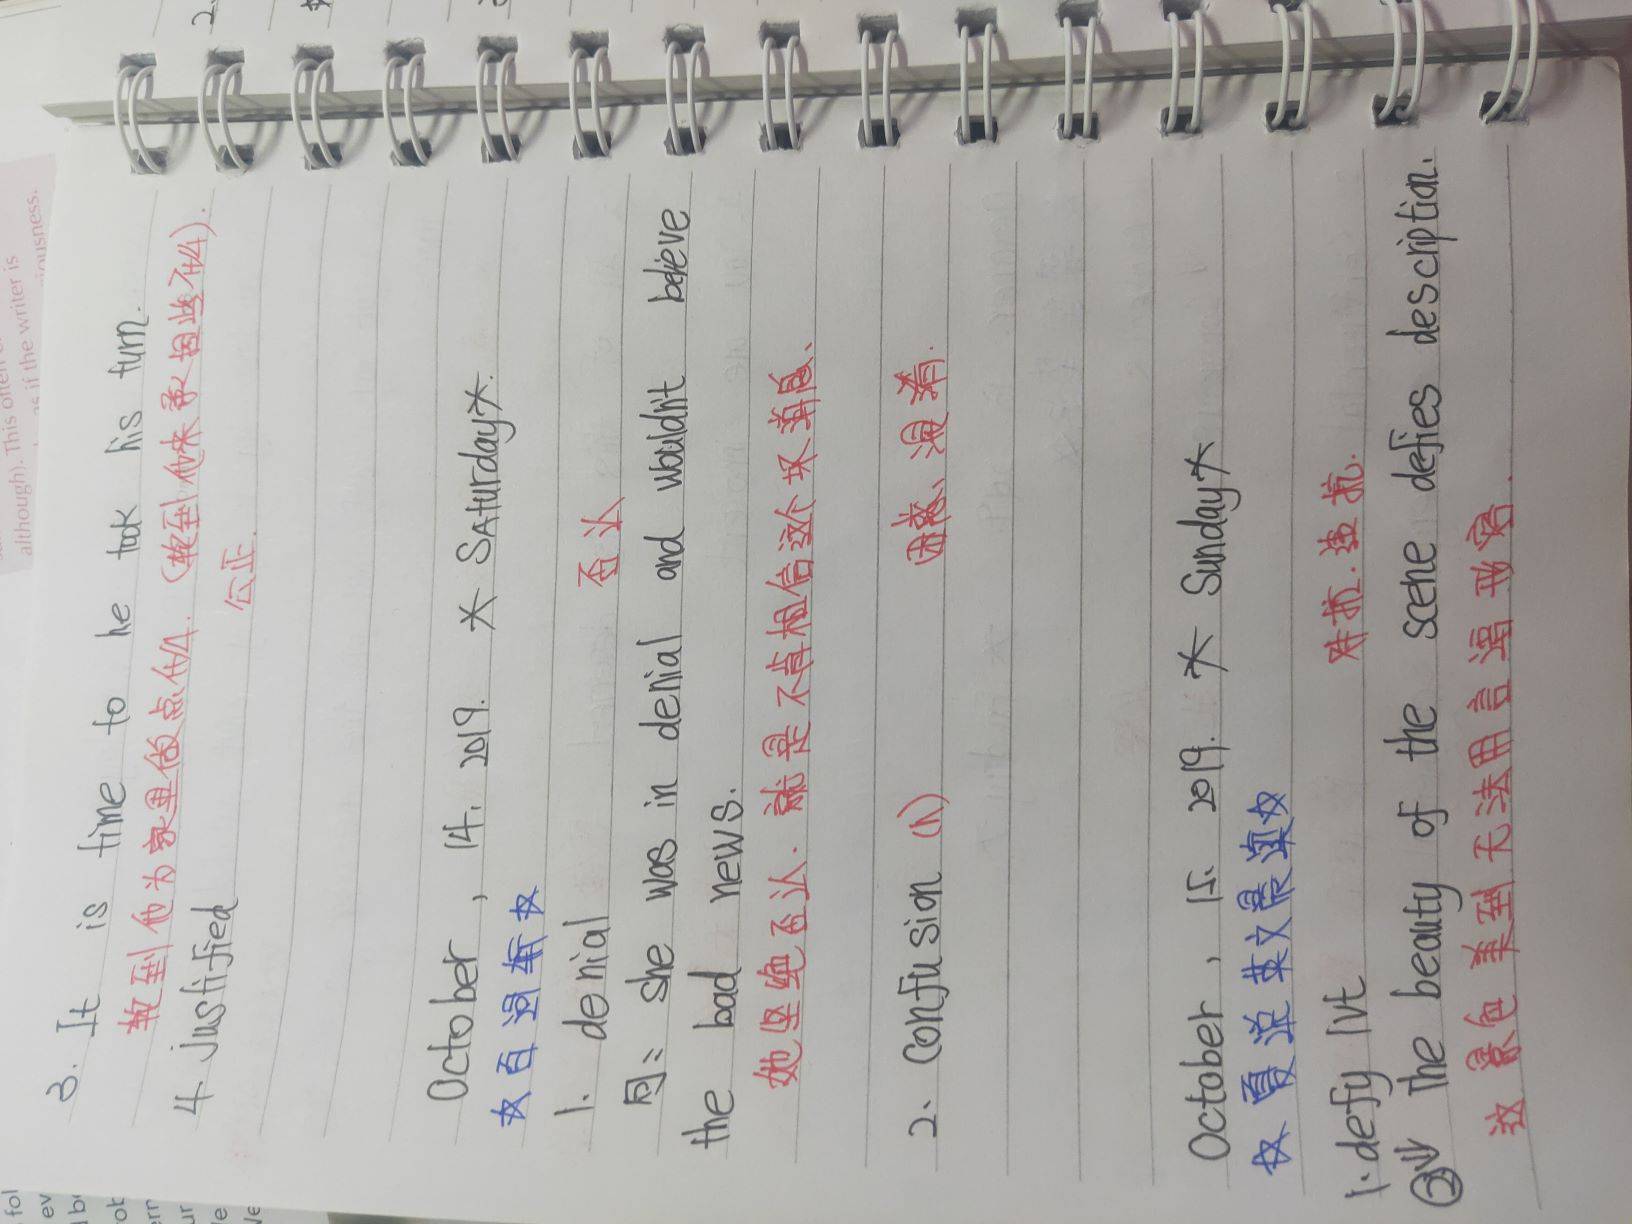 3. It is time to he took his turn.
轮到他为家里做点什么. (轮到他来承担些什么).
4 justified 公正.
October , 14. 2019. ☆ SAturday☆.
☆ 百词斩 ☆
1. denial 否认
同: she was in denial and wouldn't believe
the bad news.
她坚绝否认. 就是不肯相信这个坏消息、
2. confusion (n) 困惑、混淆.
October , 15. 2019. ☆ Sunday☆
☆ 夏说英文晨读☆
1. defy 1vt 对抗. 违抗.
② The beauty of the scene defies description.
这 景色 美到 无法用言语 形容 .
although). This often
as if the writer is
iousness.